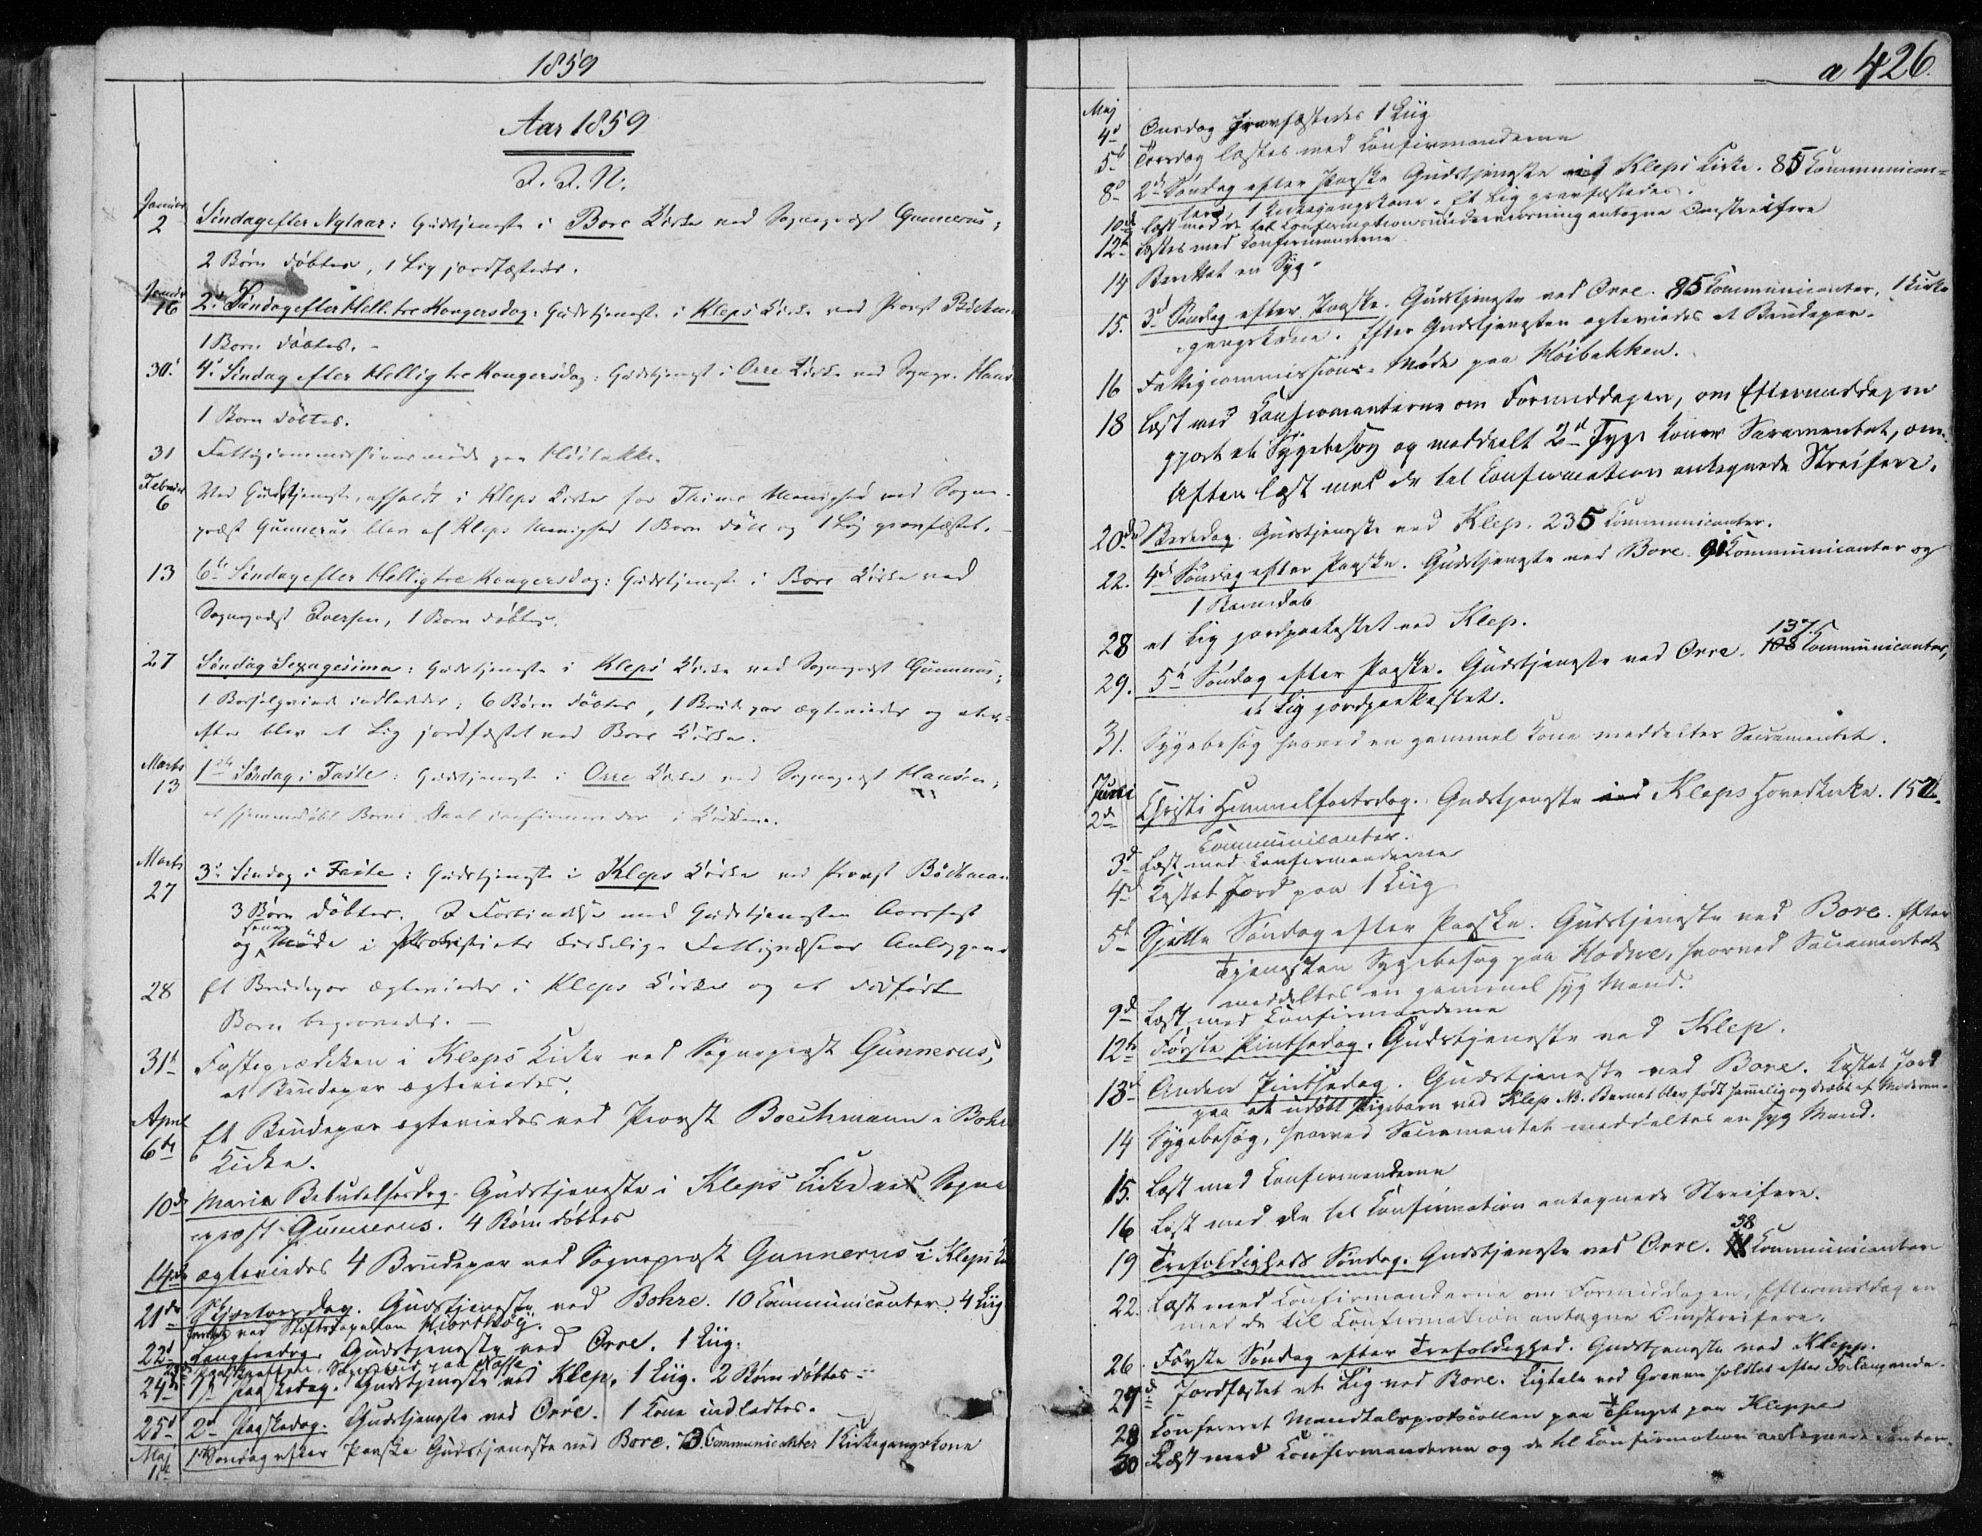 1859
Aar 1859
I. J. N.
Januar
2 Søndag efter Nytaar: Gudstjeneste i Bore Kirke ved Sognepræst Gunnerus;
2 Børn døbtes, 1 Lig jordfæstedes.
Januar
16 2d Søndag efter Hell. tre Kongersdag: Gudstjeneste i Kleps Kirke ved Provst Böckman
1 Barn døbtes. -
30. 4de Søndag efter Hellig tre Kongersdag: Gudstjenest i Orre Kirke ved Sognepr. Hans
1 Barn døbtes.
31 Fattigcommissionsmøde paa Høibakke.
Februar
6 Ved Gudstjeneste, afholdt i Kleps Kirke for Thime Menighed ved Sogne-
præst Gunnerus blev af Kleps Menighed 1 Barn døbt og 1 Lig gravfæstet.
13 6te Søndag efter Hellig tre Kongersdag: Gudstjeneste i Bore Kirke ved
Sognepræst Iversen, 1 Barn døbtes.
27 Søndag Sexagesima: Gudstjeneste i Kleps Kirke ved Sognepræst Gunnerus;
1 Barselqvinde indlededes; 6 Børn døbtes, 1 Brudepar ægteviedes og
efter blev et Lig jordfæstet ved Bore Kirke.
Marts
13 1ste Søndag i Faste: Gudstjeneste i Orre Kirke ved Sognepræst Hansen;
et hjemmedøbt Barns Daab i Kirken.
Marts
27 3de Søndag i Faste: Gudstjeneste i Kleps Kirke ved Provst Böckman
3 Børn døbtes. I Forbindelse med Gudstjenesten
og Møde i Fattigvæsens Anliggende
28 Et Brudepar ægteviedes i Kleps Kirke og et dødfødt
Barn begravedes. -
31te Fasteprædiken i Kleps Kirke ved Sognepræst Gunnerus,
et Brudepar ægteviedes.
April
6te Et Brudepar ægteviedes ved Provst Boeckmann i Bohre
Kirke.
10de Maria Bebudelsesdag. Gudstjeneste i Kleps Kirke ved Sogne
præst Gunnerus. 4 Børn døbtes
14de ægteviedes 4 Brudepar ved Sognepræst Gunnerus i Kleps
21de Skjærtorsdag. Gudstjeneste ved Bohre. 10 Communicanter. 4 Liig
ved Stiftskapellan
22d Langfredag Gudstjeneste ved Orre. 1 Liig.
24de 1ste Paaskedag. Gudstjeneste ved Klep. 1 Liig. 2 Børn døbtes.
25d 2den Paaskedag. Gudstjeneste ved Orre. 1 Kone indledtes.
Maj
1ste 1 Søndag efter Paaske Gudstjeneste ved Bore. Communicanter 1 Kirkegangskone
a 426.
Maj
4d Onsdag gravfæstedes 1 Liig
5te Torsdag læstes med Konfirmanderne
8d 2den Søndag efter Paaske Gudstjeneste Kleps Kirke. 85 Kommunican-
ter, 1 Kirkegangskone. Et Lig gravfæstedes.
10de læst med de til Konfirmationsundervisning antagne Omstreifere
12te læstes med Konfirmanderne
14 Berettet en Syg.
15. 3d Søndag efter Paaske. Gudstjeneste ved Orre. 85 Kommunicanter, 1 Kirke
gangskone. Efter Gudstjenesten ægteviedes et Brudepar.
16 Fattigcommissions-Møde paa Høibakken.
18 læst med Konfirmanterne om Formiddagen, om Eftermiddagen
gjort et Sygebesøg og meddeelt 2d Syge Koner Sacramentet, om
Aften læst med de til Confirmation antegnede Streifere.
20de Bededag. Gudstjeneste ved Klep. 235 Kommunicanter.
22. 4d Søndag efter Paaske. Gudstjeneste ved Bore. 91 Kommunicanter og
1 Barnedaab
28 et Lig jordpaakastet ved Klep.
29. 5te Søndag efter Paaske. Gudstjeneste ved Orre. 137 Communicanter,
et Lig jordpaakastet.
31. Sygebesøg hvorved en gammel Kone meddeltes Sacramentet.
Juni
2d Christi Himmelfartsdag. Gudstjeneste Kleps Hovedkirke. 152
Communicanter.
3d Læst med Konfirmanderne
4d Kastet Jord paa 1 Liig
5te Sjette Søndag efter Paaske. Gudstjeneste ved Bore. Efter
Tjenesten Sygebesøg paa Hodne, hvorved Sacramentet
meddeltes en gammel syg Mand.
9d Læst med Confirmanderne
12te Første Pintsedag. Gudstjeneste ved Klep.
13d Anden Pintsedag. Gudstjeneste ved Bore. Kastet Jord
paa et udøbt Pigebarn ved Klep NB. Barnet blev født hemmelig og dræbt af Moderen.
14 Sygebesøg, hvorved Sacramentet meddeltes en syg Mand.
15. Læst med Konfirmanderne
16 Læst med de til Confirmation antegnede Streifere.
19 Trefoldigheds Søndag. Gudstjeneste ved Orre. 38 Kommunicanter
22. Læst med Konfirmanderne om Formiddagen, Eftermiddagen
med de til Konfirmation antagne Omstreifere.
26. Første Søndag efter Trefoldighed. Gudstjeneste ved Klepp.
29d Jordfæstet et Lig ved Bore. Ligtale ved Graven holdtes efter Forlangende.
28 Confereret Mandtalsprotocollen paa Thinget paa Kleppe
30 Læst med Confirmanderne og de til Confirmation antegnede Fanter.